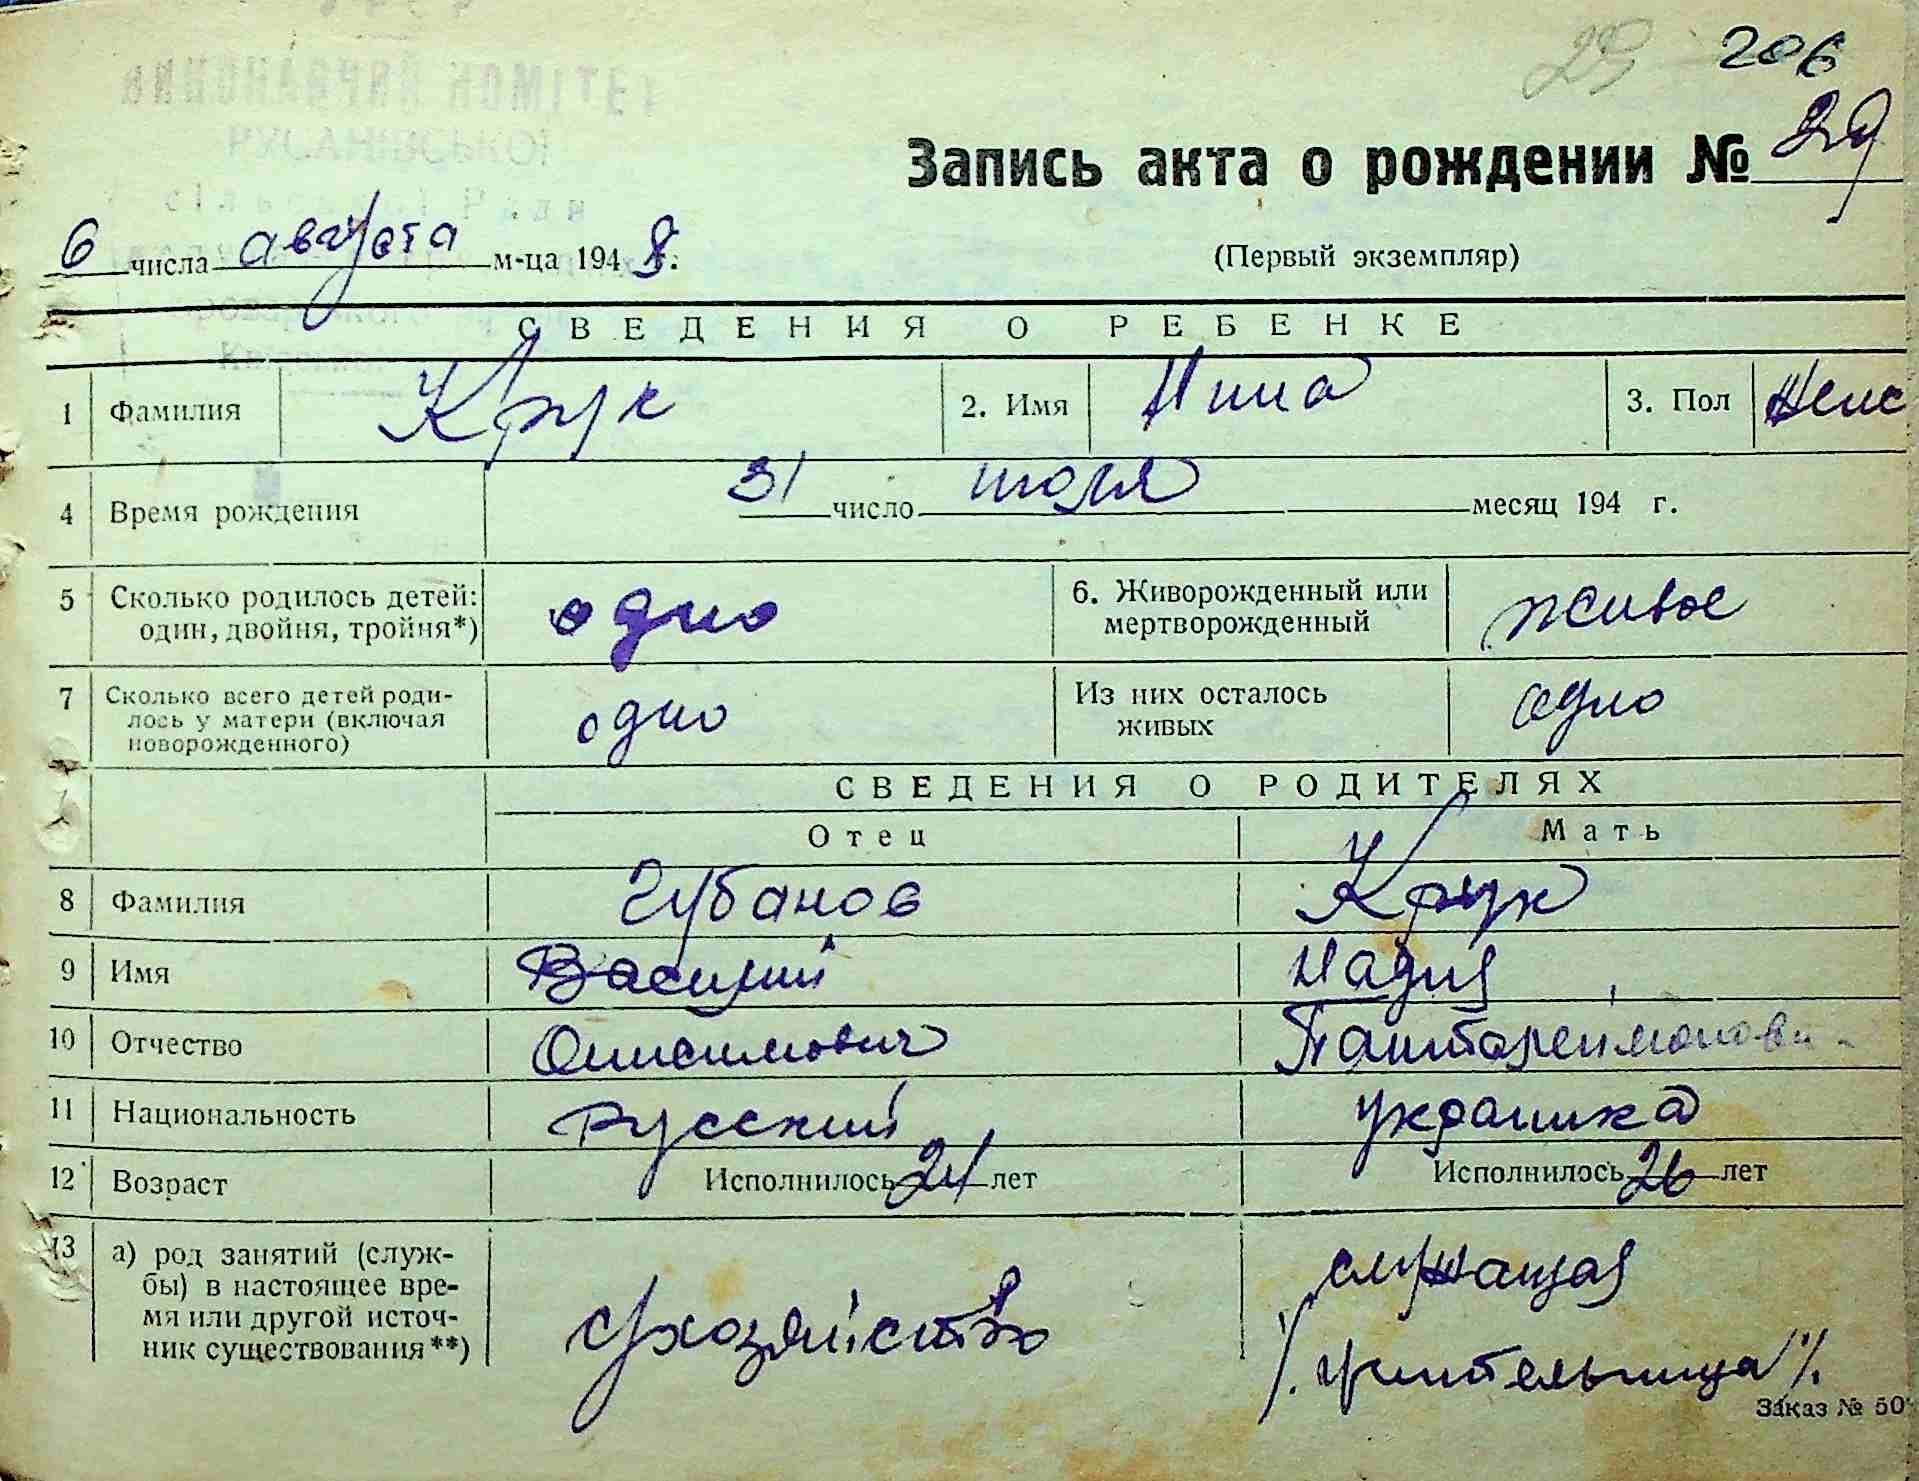 29 206
Запись акта о рождении № 29
6 числа августа м-ца 1948 г.
(Первый экземпляр)
СВЕДЕНИЯ О РЕБЕНКЕ
1 Фамилия Крук 2. Имя Нина 3. Пол женс
4 Время рождения 31 число июля месяц 194 г.
5 Сколько родилось детей: один, двойня, тройня*) одно 6. Живорожденный или мертворожденный живое
7 Сколько всего детей роди-
лось у матери (включая
новорожденного) одно Из них осталось живых одно
СВЕДЕНИЯ О РОДИТЕЛЯХ
Отец Мать
8 Фамилия Губанов Крук
9 Имя Василий Надия
10 Отчество Онисимович
11 Национальность Русский украинка
12 Возраст Исполнилось 24 лет Исполнилось 26 лет
13 а) род занятий (служ-
бы) в настоящее вре-
мя или другой источ-
ник существования**)
служащая
/. учительница /.
Заказ № 50